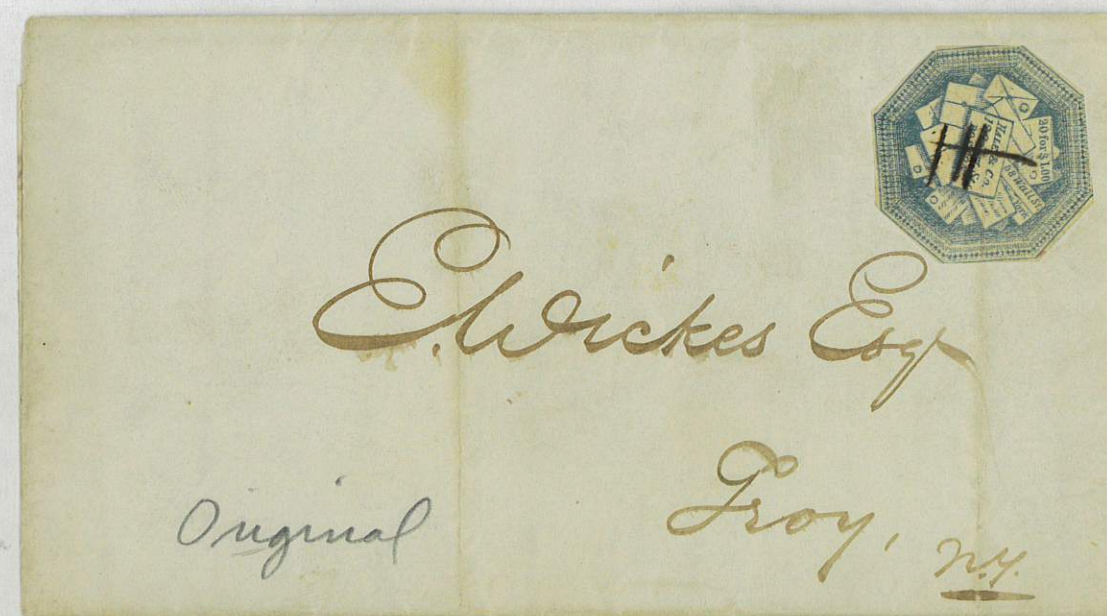 20 for $1.00
HALE & Co.
E. Wickes Esqr
Troy, N.Y.
Original